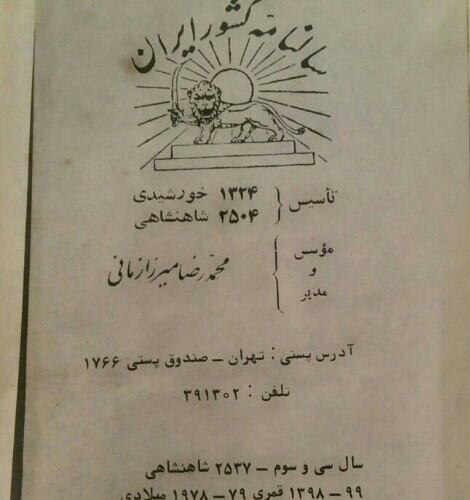 سالنامه کشور ایران
تأسیس { ۱۳۲۴ خورشیدی
۲۵۰۴ شاهنشاهی
مؤسس و مدیر { محمدرضا میرزازمانی
آدرس پستی : تهران ـ صندوق پستی ۱۷۶۶
تلفن : ۳۹۱۳۰۲
سال سی و سوم ـ ۲۵۳۷ شاهنشاهی
۹۹ ـ ۱۳۹۸ قمری ۷۹ ـ ۱۹۷۸ میلادی